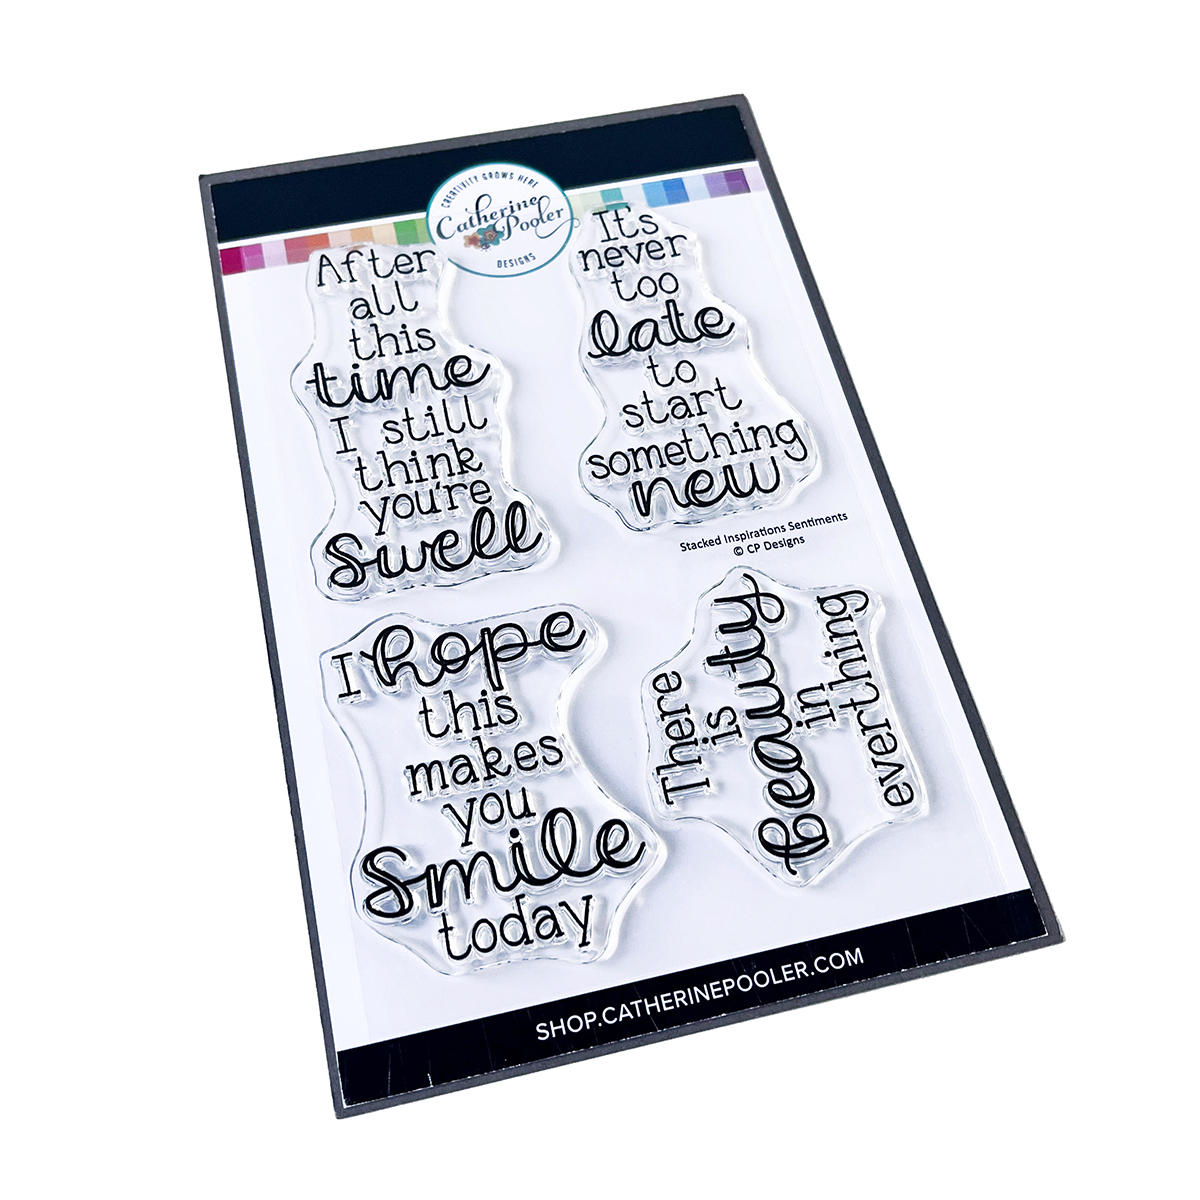 CREATIVITY GROWS HERE
Catherine
Pooler
DESIGNS
After
all
this
time
I still
think
you're
swell
It's
never
too
late
to
start
something
new
Stacked Inspirations Sentiments
© CP Designs
I hope
this
makes
you
smile
today
There
is
beauty
in
everthing
SHOP.CATHERINEPOOLER.COM